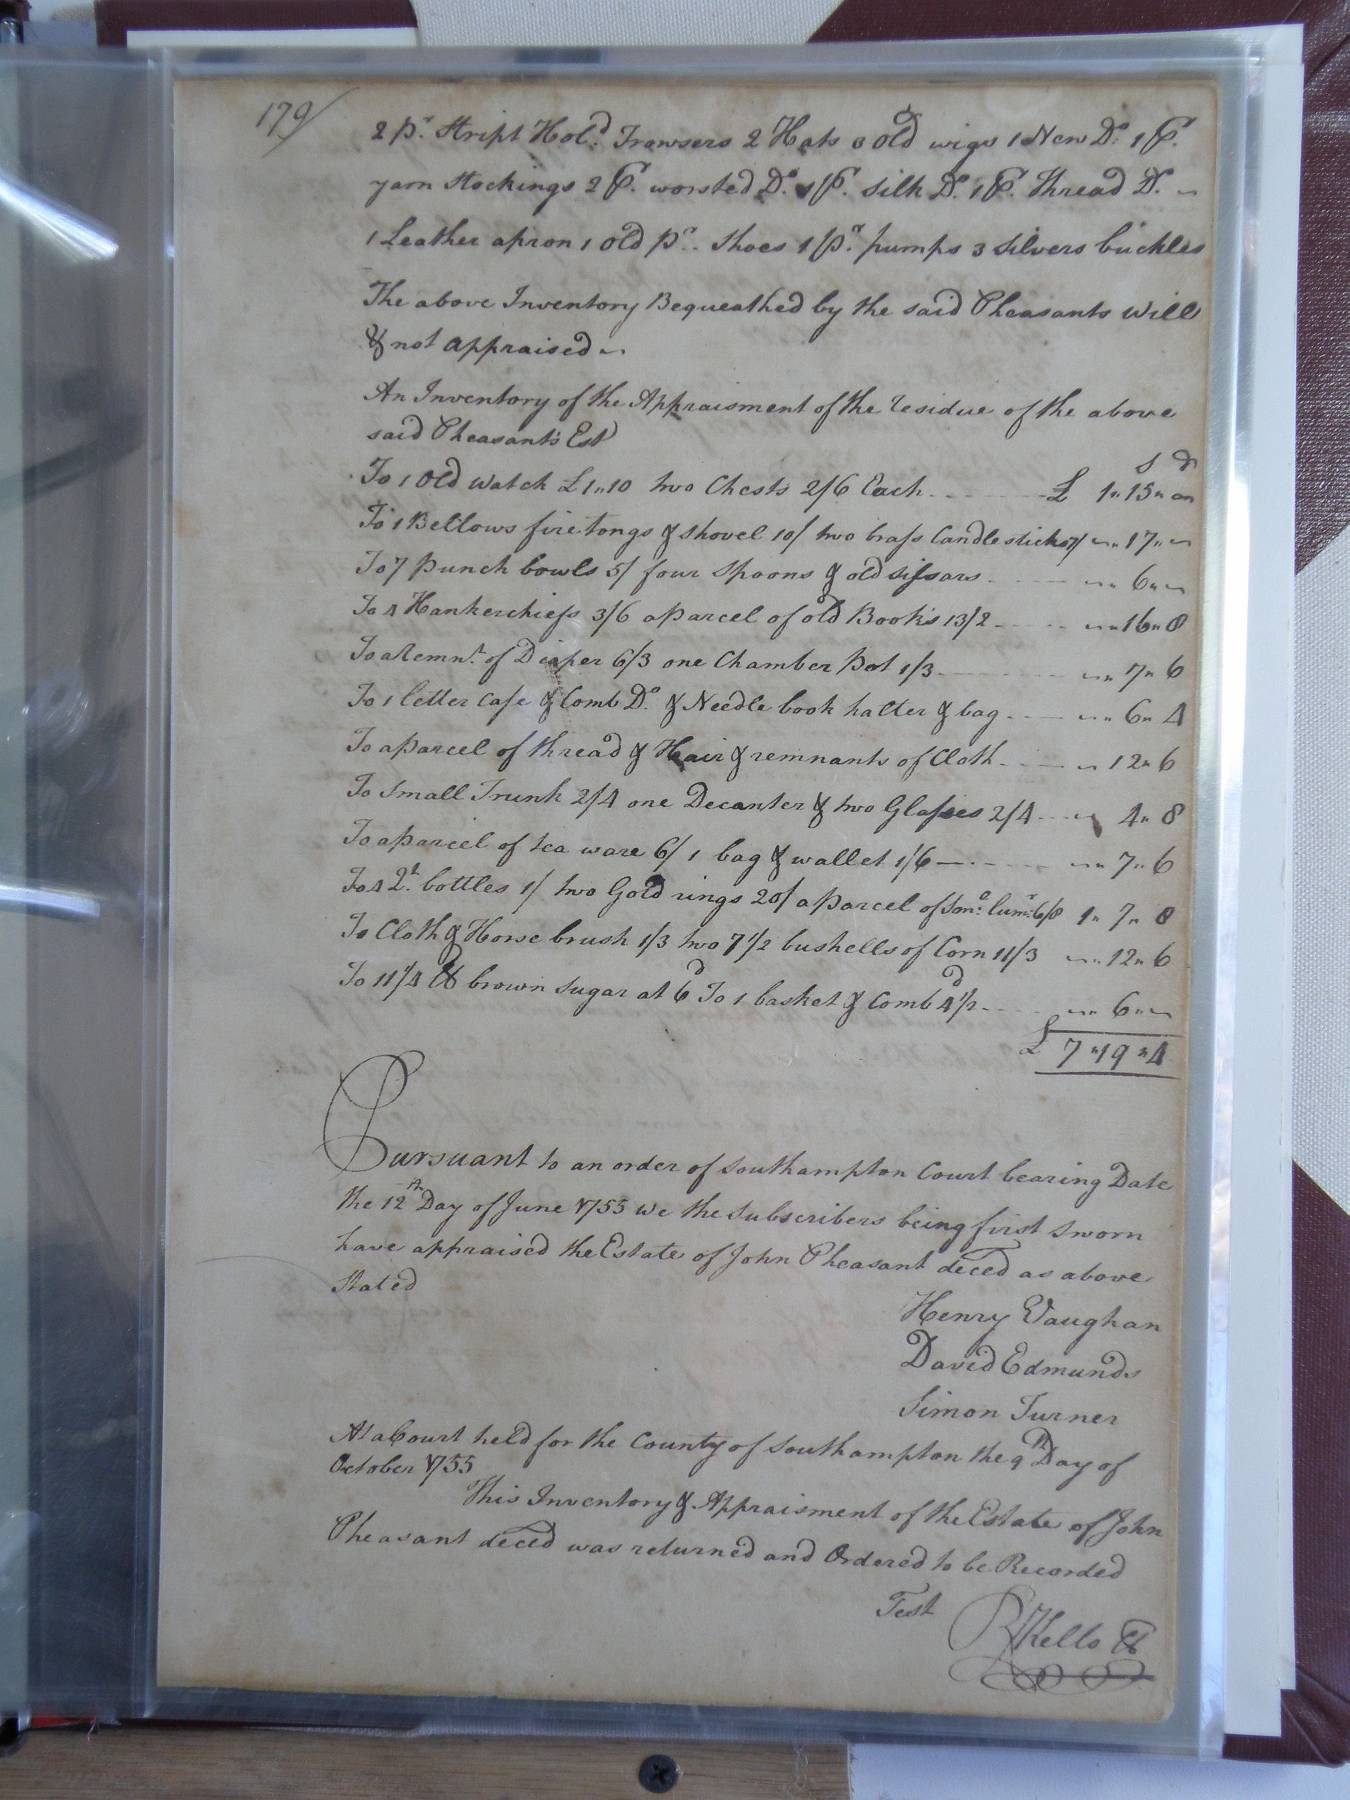 179/
2 pr. Stript Hold. Trowsers 2 Hats 3 old wigs 1 New Do. 1 Pr.
yarn Stockings 2 Pr. worsted Do. 1 Pr. Silk Do. 1 Pr. Thread Do.
1 Leather apron 1 old pr. Shoes 1 pr. pumps 3 Silvers buckles
The above Inventory Bequeathed by the said Pheasants Will
& not appraised
An Inventory of the Appraisment of the residue of the above
said Pheasants Est
S d
To 1 Old Watch £1"10 two Chests 2/6 Each £ 1"15"
To 1 Bellows fire tongs & shovel 10/ two brass Candlesticks 7/ "17"
To 7 punch bowls 5/ four Spoons & old sissars "6"
To 4 Hankerchiefs 3/6 a parcel of old Books 13/2 "16"8
To a Remnt. of Diaper 6/3 one Chamber Pot 1/3 "7"6
To 1 letter Case & Comb Do. & Needle book halter & bag "6"4
To a parcel of thread & Hair & remnants of Cloth 12"6
To Small Trunk 2/4 one Decanter & two Glasses 2/4 4"8
To a parcel of tea ware 6/ 1 bag & wallet 1/6 "7"6
To 4 Qt. bottles 1/ two Gold rings 20/ a parcel of 6/8 1"7"8
To Cloth & Horse brush 1/3 two 7 1/2 bushells of Corn 11/3 "12"6
To 11 1/4 lb brown Sugar at 6d To 1 basket & Comb 4 1/2d "6"
£ 7"19"4
Pursuant to an order of Southampton Court bearing Date
the 12th Day of June 1755 we the Subscribers being first Sworn
have appraised the Estate of John Pheasant deced as above
Stated
Henry Vaughan
David Edmunds
Simon Turner
At a Court held for the County of Southampton the 9th Day of
October 1755
This Inventory & Appraisment of the Estate of John
Pheasant deced was returned and Ordered to be Recorded
Test
R Kello